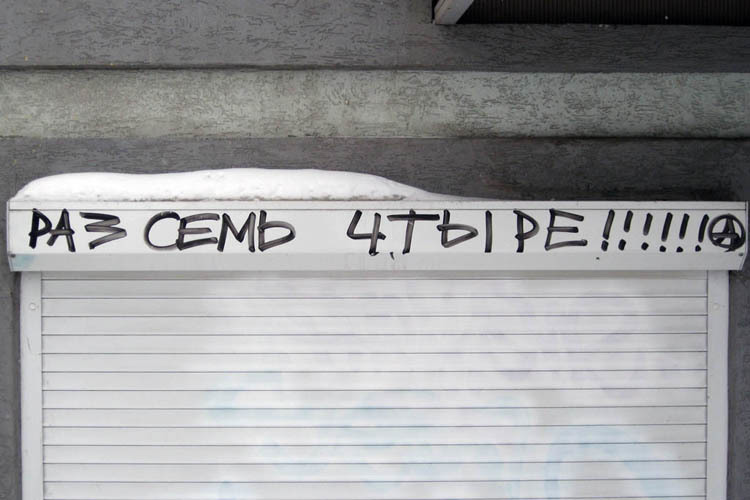 РАЗ СЕМЬ ЧТЫРЕ!!!!!!Ⓐ